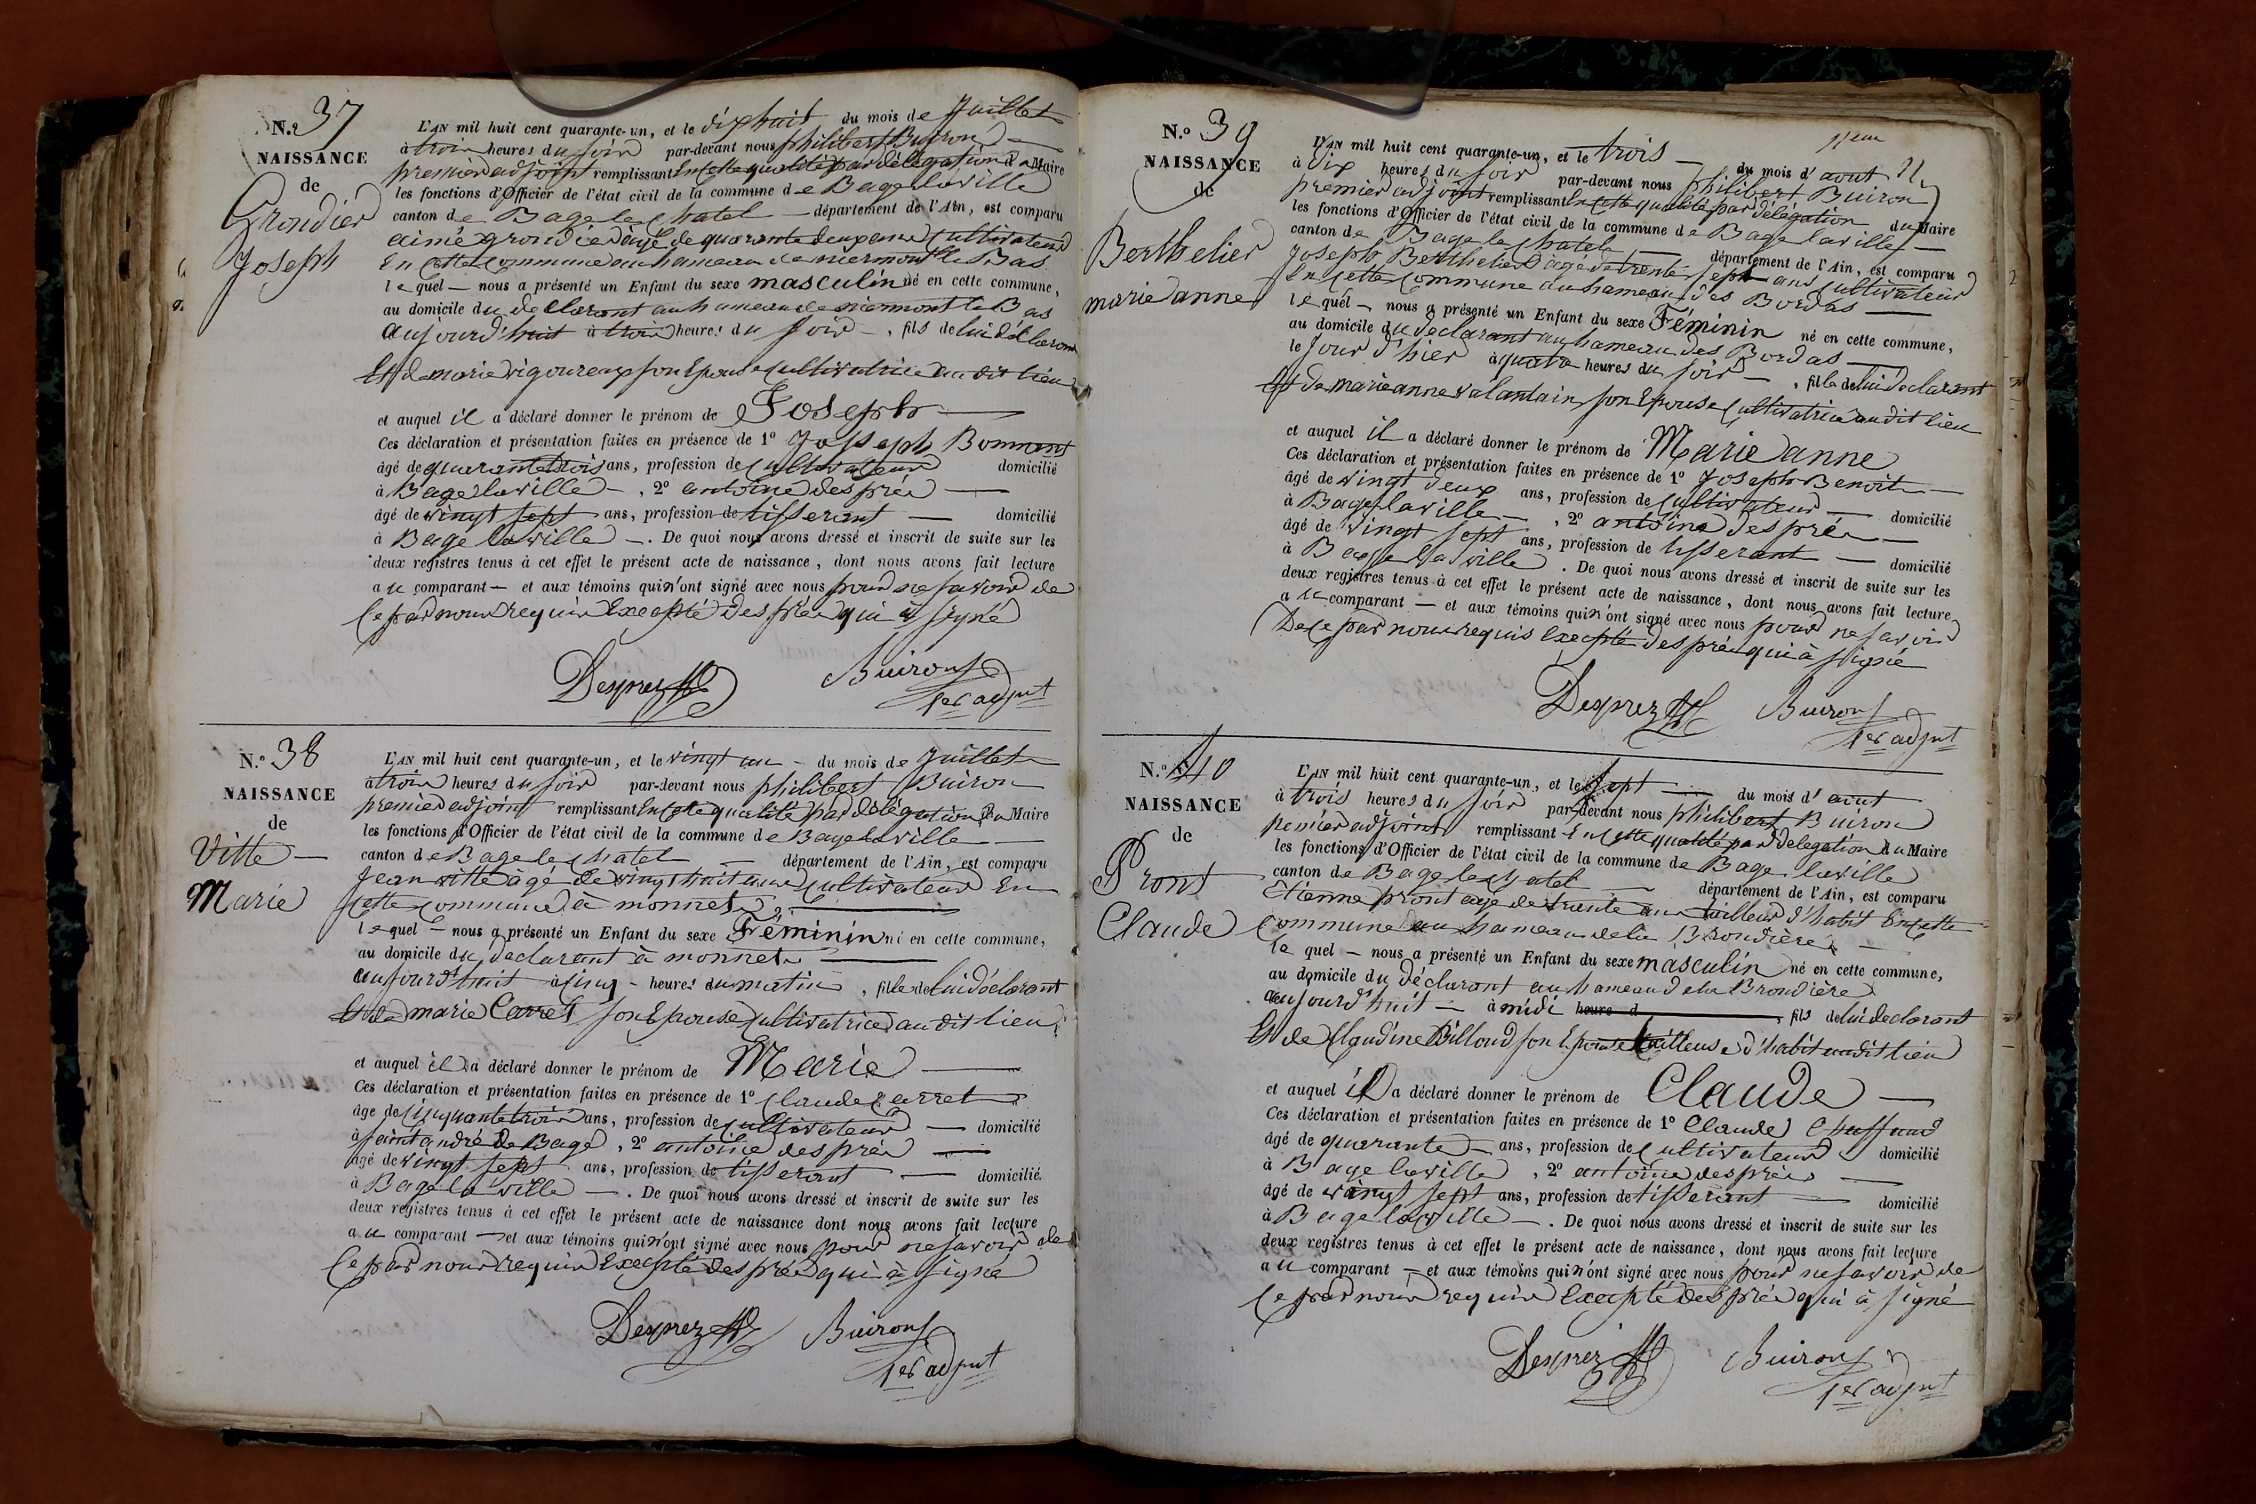 N.° 37
NAISSANCE
de
Grondier
Joseph
L'AN mil huit cent quarante-un, et le dixhuit du mois de Juillet
à trois heures du soir par-devant nous philibert Buiron
premier adjoint remplissant En cette qualité par délégation du Maire
les fonctions d'Officier de l'état civil de la commune de Bage la ville
canton de Bage le chatel département de l'Ain, est comparu
aimé grondier âgé de quarante deux ans cultivateur
En cette commune au hameau de niermont le Bas
lequel nous a présenté un Enfant du sexe masculin né en cette commune,
au domicile du declarant au hameau de niermont le Bas
aujourd'huit à trois heures du soir, fils de lui déclarant
Et de marie vigoureux son Epouse cultivatrice au dit lieu
et auquel il a déclaré donner le prénom de Joseph
Ces déclaration et présentation faites en présence de 1° Joseph Bonnant
âgé de quarante trois ans, profession de cultivateur domicilié
à Bage la ville, 2° antoine despréz
âgé de vingt sept ans, profession de tisserant domicilié
à Bage la ville. De quoi nous avons dressé et inscrit de suite sur les
deux registres tenus à cet effet le présent acte de naissance, dont nous avons fait lecture
au comparant et aux témoins qui n'ont signé avec nous pour ne savoir de
ce par nous requis Excepté despréz qui à signé
Desprez Buiron
1er adjnt
N.° 38
NAISSANCE
de
Vitte
Marie
L'AN mil huit cent quarante-un, et le vingt un du mois de Juillet
à trois heures du soir par-devant nous philibert Buiron
premier adjoint remplissant En cette qualité par délégation du Maire
les fonctions d'Officier de l'état civil de la commune de Bage la ville
canton de Bage le chatel département de l'Ain, est comparu
Jean vitte âgé de vingt huit ans cultivateur En
cette commune à monnet
lequel nous a présenté un Enfant du sexe Féminin né en cette commune,
au domicile du declarant à monnet
aujourd'huit à cinq heures du matin, fille de lui déclarant
Et de marie Carret son Epouse cultivatrice au dit lieu
et auquel il a déclaré donner le prénom de Marie
Ces déclaration et présentation faites en présence de 1° Claude Carret
âgé de cinquante trois ans, profession de cultivateur domicilié
à saint andré de Bage, 2° antoine despréz
âgé de vingt sept ans, profession de tisserant domicilié
à Bage la ville. De quoi nous avons dressé et inscrit de suite sur les
deux registres tenus à cet effet le présent acte de naissance dont nous avons fait lecture
au comparant et aux témoins qui n'ont signé avec nous pour ne savoir de
ce par nous requis Excepté despréz qui à signé
Desprez Buiron
1er adjnt
N.° 39
NAISSANCE
de
Berthelier
marie anne
L'AN mil huit cent quarante-un, et le trois du mois d'aout
à dix heures du soir par-devant nous philibert Buiron
premier adjoint remplissant En cette qualité par délégation du Maire
les fonctions d'Officier de l'état civil de la commune de Bage la ville
canton de Bage le chatel département de l'Ain, est comparu
Joseph Berthelier âgé de trente sept ans cultivateur
En cette commune au hameau des Bordas
lequel nous a présenté un Enfant du sexe Féminin né en cette commune,
au domicile du declarant au hameau des Bordas
le Jour d'hier à quatre heures du soir, fille de lui declarant
Et de marie anne valantain son Epouse cultivatrice au dit lieu
et auquel il a déclaré donner le prénom de Marie anne
Ces déclaration et présentation faites en présence de 1° Joseph Benoit
âgé de vingt deux ans, profession de cultivateur domicilié
à Bage la ville, 2° antoine despréz
âgé de vingt sept ans, profession de tisserant domicilié
à Bage la ville. De quoi nous avons dressé et inscrit de suite sur les
deux registres tenus à cet effet le présent acte de naissance, dont nous avons fait lecture
au comparant et aux témoins qui n'ont signé avec nous pour ne savoir
De ce par nous requis Excepté despréz qui à signé
Desprez Buiron
1er adjnt
N.° 40
NAISSANCE
de
Pront
Claude
L'AN mil huit cent quarante-un, et le sept du mois d'aout
à trois heures du soir par-devant nous philibert Buiron
pemier adjoint remplissant En cette qualité par délegation du Maire
les fonctions d'Officier de l'état civil de la commune de Bage la ville
canton de Bage le chatel département de l'Ain, est comparu
Etienne pront age de trente ans tailleur d'habit En cette
commune au hameau de la Brondière
lequel nous a présenté un Enfant du sexe masculin né en cette commune,
au domicile du déclarant au hameau de la Brondière
aujourd'huit à midi heure d, fils de lui declarant
Et de Claudine Billoud son Epouse tailleuse d'habit au dit lieu
et auquel il a déclaré donner le prénom de Claude
Ces déclaration et présentation faites en présence de 1° Claude
âgé de quarante ans, profession de cultivateur domicilié
à Bage la ville, 2° antoine despréz
âgé de vingt sept ans, profession de tisserant domicilié
à Bage la ville. De quoi nous avons dressé et inscrit de suite sur les
deux registres tenus à cet effet le présent acte de naissance, dont nous avons fait lecture
au comparant et aux témoins qui n'ont signé avec nous pour ne savoir de
ce par nous requis Excepté despréz qui à signé
Desprez Buiron
1er adjnt